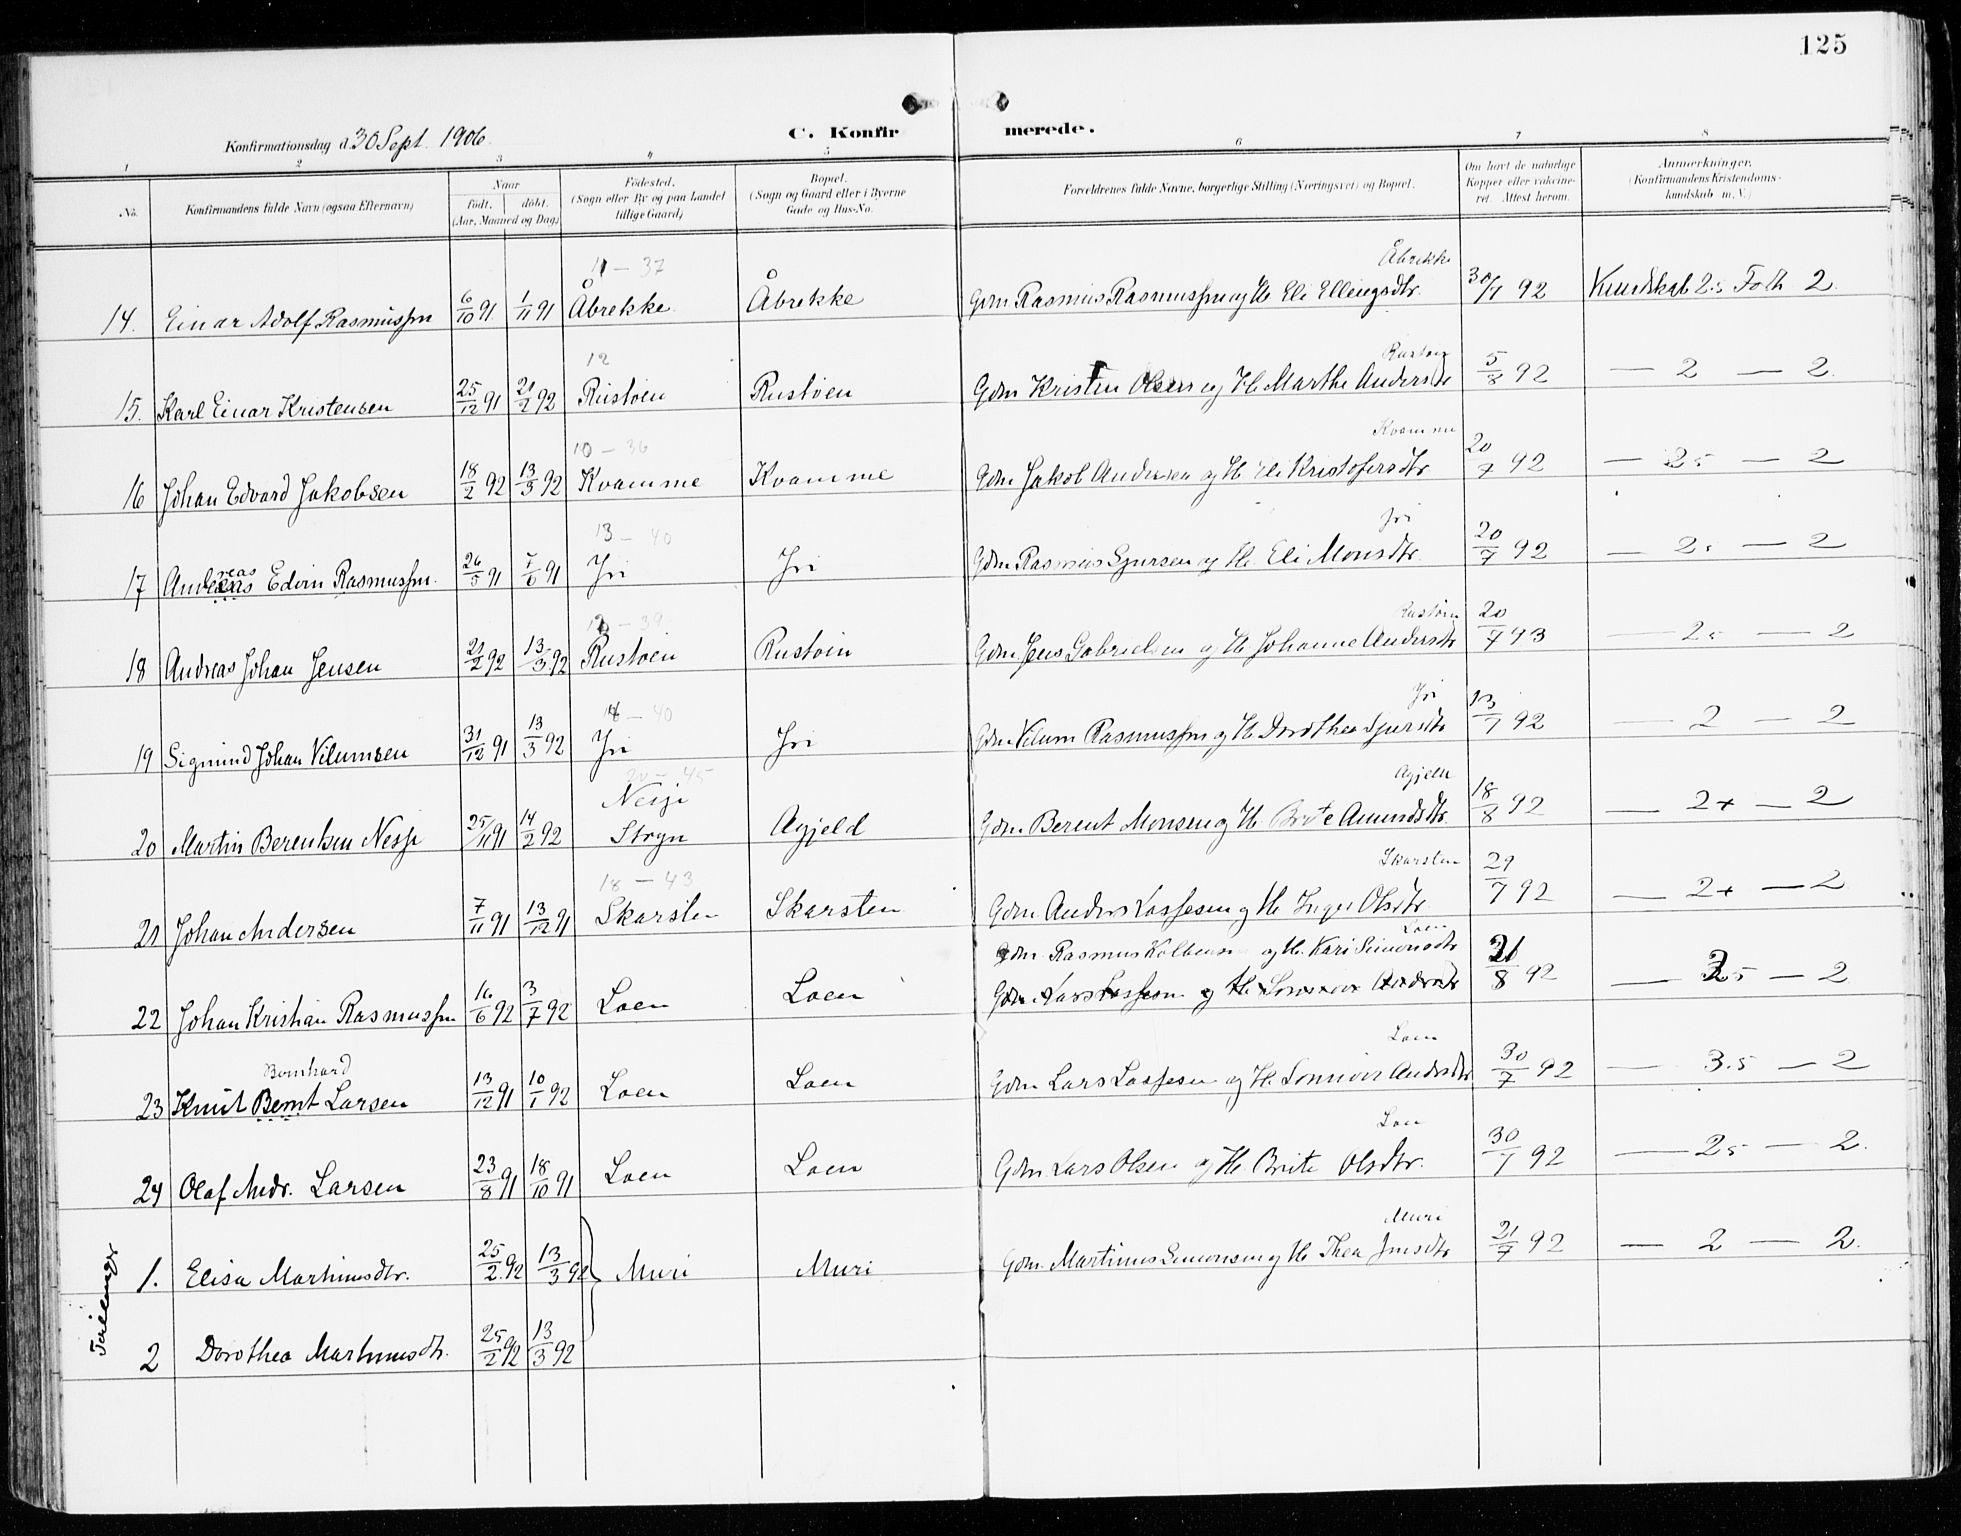 125
Konfirmationsdag d. 30 Sept. 1906. C. Konfir merede.
1 2 3 4 5 6 7 8
No. Konfirmandens fulde Navn (ogsaa Efternavn) Naar født, døbt. (Aar, Maaned og Dag) Fødested. (Sogn eller By og paa Landet tillige Gaard) Bopæl. (Sogn og Gaard eller i Byerne Gade og Hus-No. Forældrenes fulde Navne, borgerlige Stilling (Næringsvei) og Bopæl. Om havt de naturlige Kopper eller vakcineret. Attest herom. Anmerkninger. (Konfirmandens Kristendomskundskab m. V.)
11 — 37 Åbrekke
14. Einar Adolf Rasmussen 6/10 91 1/11 91 Åbrekke Åbrekke Gdm Rasmus Rasmussen og H. Eli Ellingsdtr. 30/7 92 Kundskab 2.5 Foth 2.
12 Rustøen
15. Karl Einar Kristensen 25/12 91 21/2 92 Rustøen Rustøen Gdm Kristen Olsen og H. Marthe Andersdtr 5/8 92 — 2 — 2.
10 — 36 Kvamme
16 Johan Edvard Jakobsen 18/2 92 13/3 92 Kvamme Kvamme Gdm Jakob Andersen og H. Eli Kristofersdtr 20/7 92 — 25 — 2
13 — 40 Jri
17 Andreas Edvin Rasmussen. 26/5 91 7/6 91 Jri Jri Gdm Rasmus Sjursen og H. Eli Monsdtr. 20/7 92 — 2. — 2
39 Rustøen
18 Andreas Johan Jensen 21/2 92 13/3 92 Rustøen Rustøen Gdm Jens Gabrielsen og H. Johanne Andersdtr 20/7 93 — 25 — 2
14 — 40 Jri
19 Sigmund Johan Vilumsen 31/12 91 13/3 92 Jri Jri Gdm Vilum Rasmussen og H. Dorothea Sjursdtr 13/7 92 — 2 — 2
20 — 45 Agjeld
20 Martin Berentsen Nesje 25/11 91 14/2 92 Nesje Stryn Agjeld Gdm. Berent Monsen og H. Brite Amundsdtr. 18/8 92 — 2+ — 2
18 — 43 Skarsten
21 Johan Andersen 7/11 91 13/12 91 Skarsten Skarsten Gdm. Anders Lassesen og H. Inger Olsdtr. 29/7 92 — 2+ — 2
Loen
Gdm. Rasmus Kolbens og H. Kari Simonsdtr
22 Johan Kristian Rasmussen 16/6 92 3/7 92 Loen Loen Gdm. Lars Lassesen og H. Sonnove Andersdtr 21/8 92 — 25 — 2
Bernhard Loen
23 Knut Bernt Larsen 13/12 91 10/1 92 Loen Loen Gdm. Lars Lassesen og H. Sonnove Andersdtr 30/7 92 — 3.5 — 2
Loen
24 Olaf Andr. Larsen 23/8 91 18/10 91 Loen Loen Gdm. Lars Olsen og H. Brite Olsdtr. 30/7 92 — 25 — 2.
Muri
1. Elisa Martinusdtr. 25/2 92 13/3 92 Muri Muri Gdm. Martinus Simonsen og H. Thea Jensdtr 21/7 92 — 2 — 2.
2 Dorothea Martinusdtr. 25/2 92 13/3 92